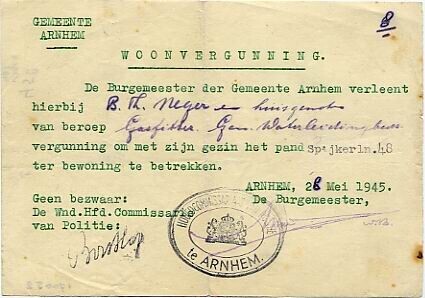 GEMEENTE
ARNHEM
8
WOONVERGUNNING.
De Burgemeester der Gemeente Arnhem verleent
hierbij B. Th. Neger en huisgenoten
van beroep Gasfitter, Gem. Waterleidingbedr.
vergunning om met zijn gezin het pand Spijkerln.48
ter bewoning te betrekken.
ARNHEM, 28 Mei 1945.
Geen bezwaar: De Burgemeester,
De Wnd.Hfd.Commissaris
van Politie:
te ARNHEM.